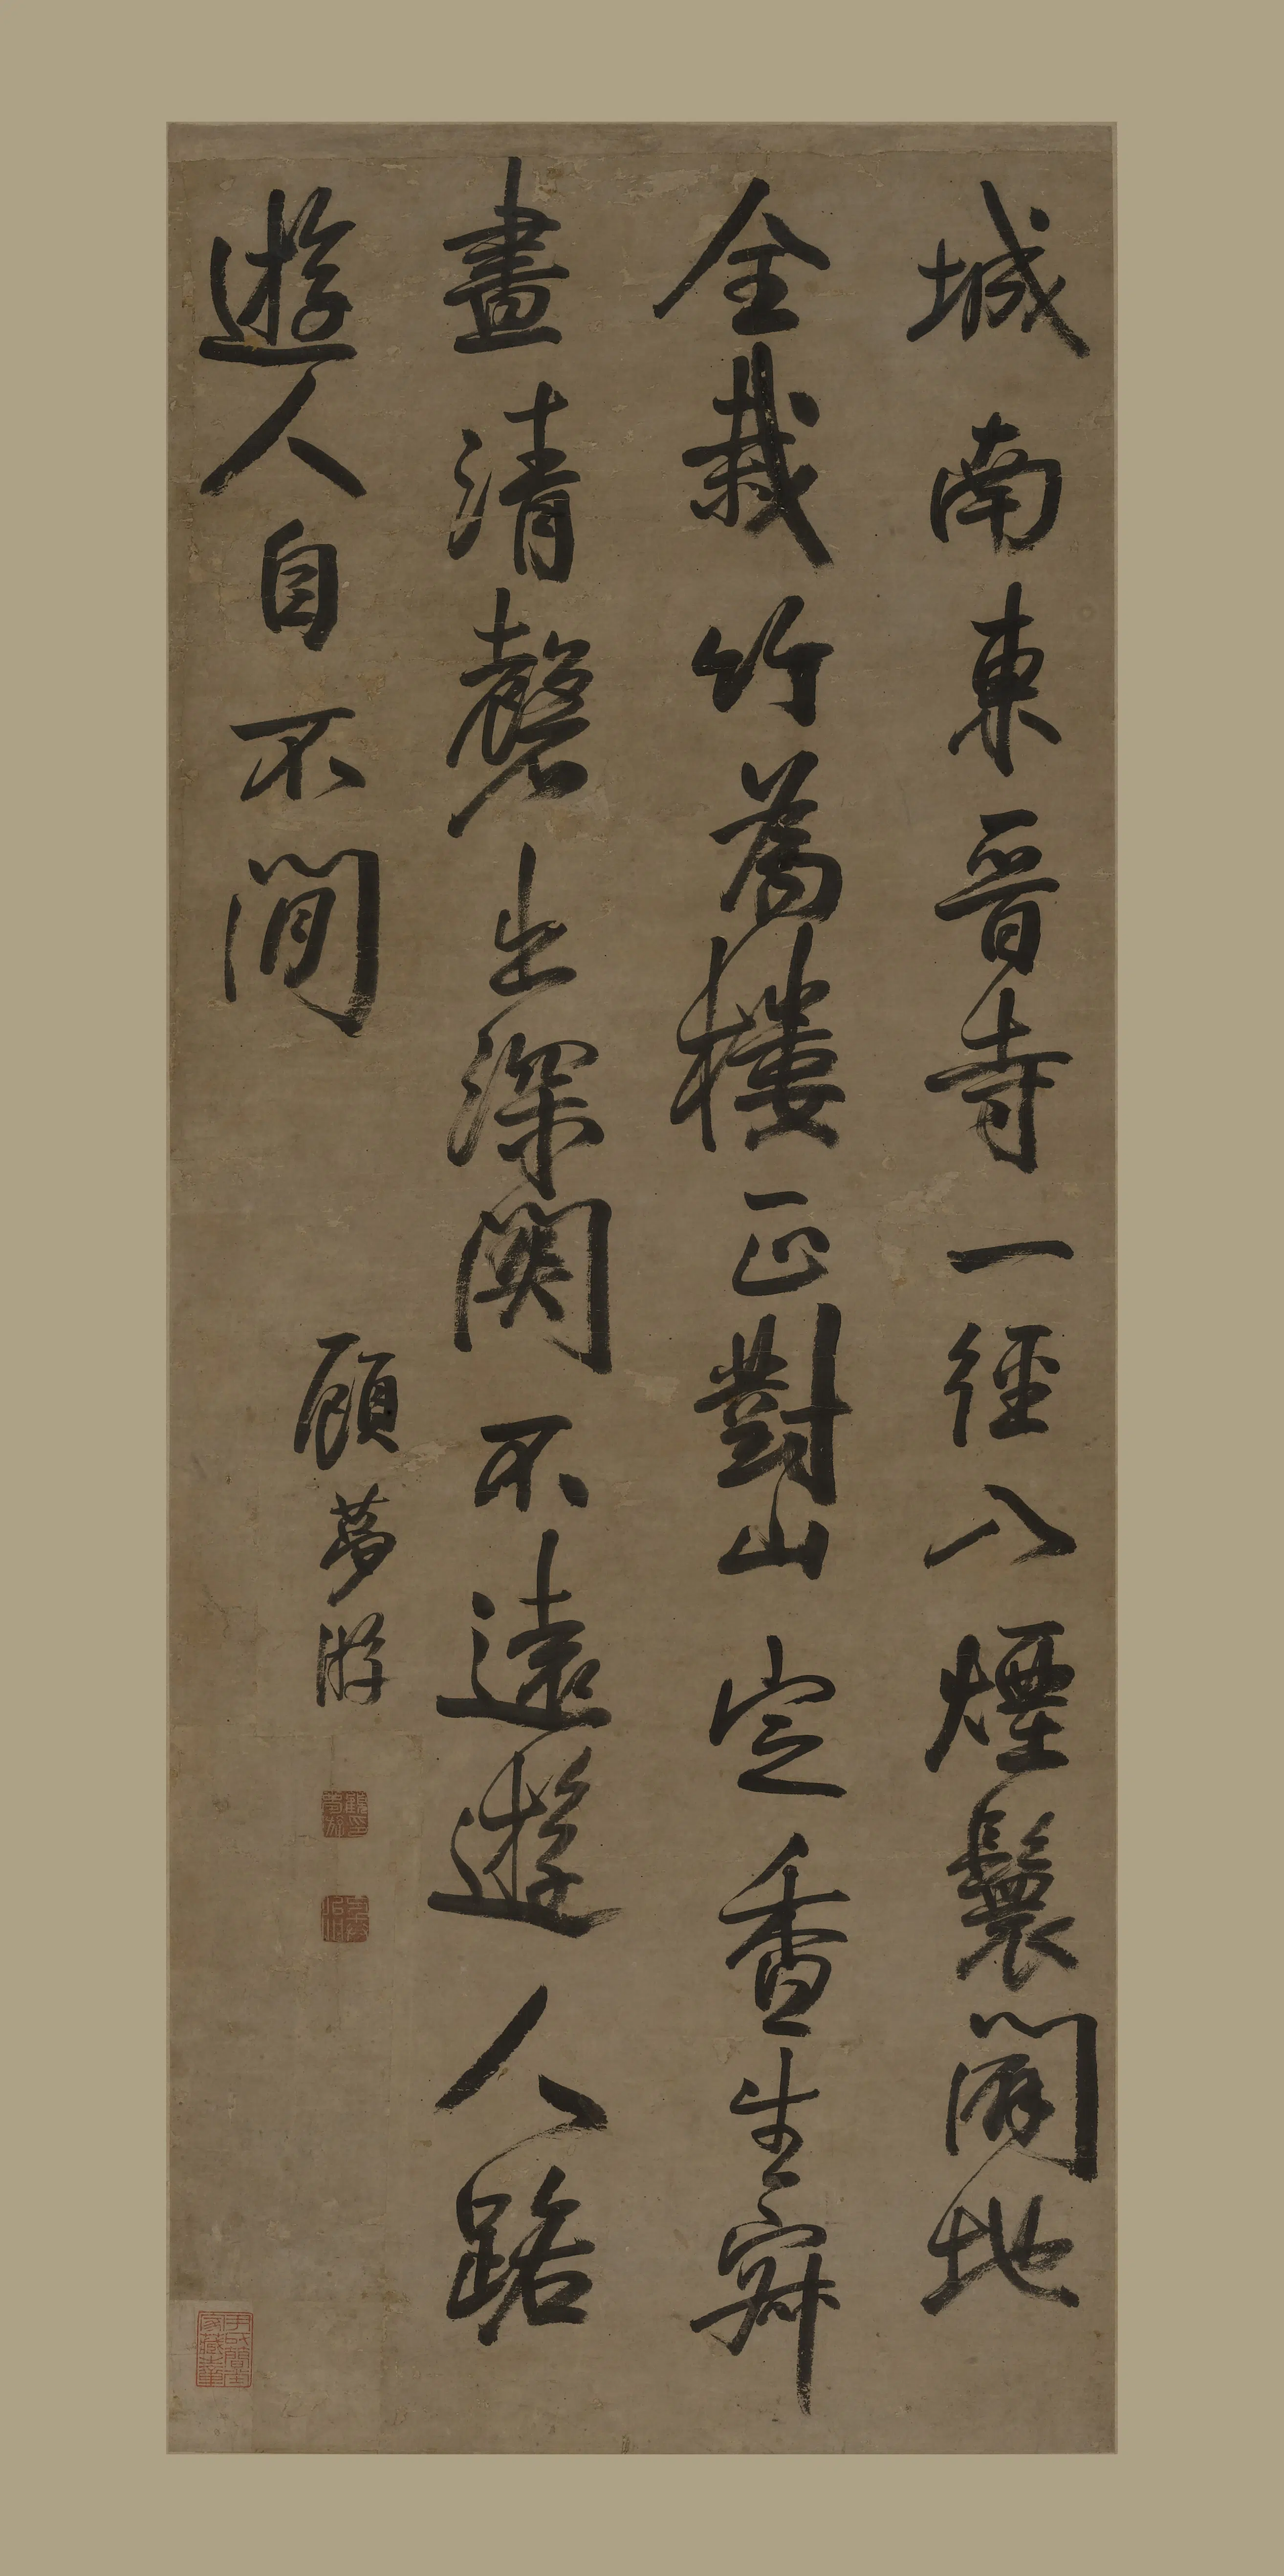 城南東晉寺一徑入煙鬟闢地
全栽竹為樓正對山定香生寂
晝清磬出深關不遠遊人路
遊人自不閒
顧夢游